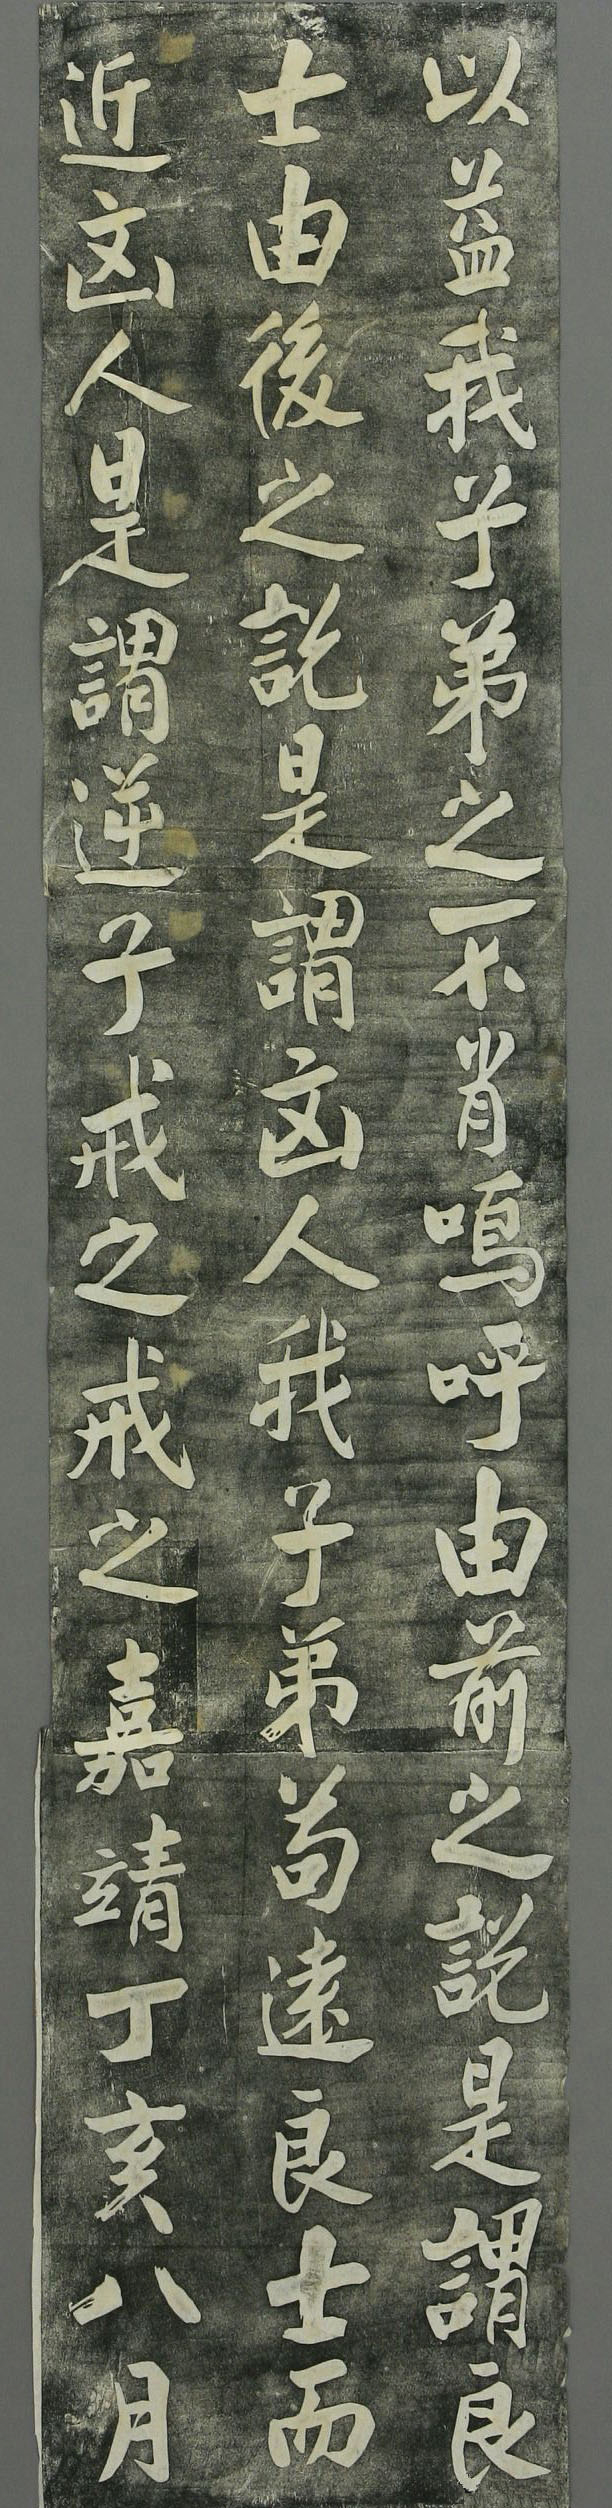 以益我子弟之不肖嗚呼由前之説是謂良
士由後之説是謂凶人我子弟苟遠良士而
近凶人是謂逆子戒之戒之嘉靖丁亥八月